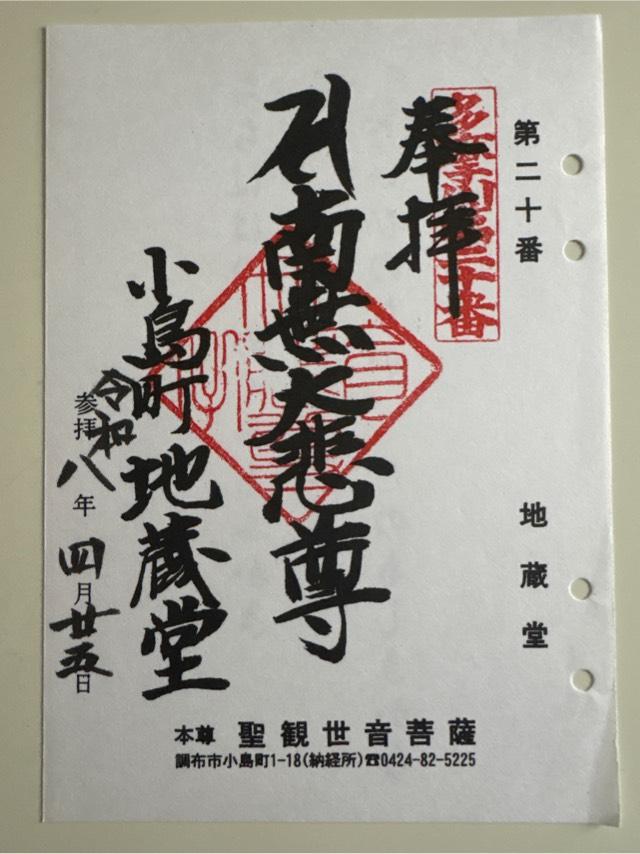 第二十番 地蔵堂
奉拝
南無大悲尊
小島町地蔵堂
参拝 令和八年四月廿五日
本尊 聖観世音菩薩
調布市小島町1-18(納経所)☎0424-82-5225